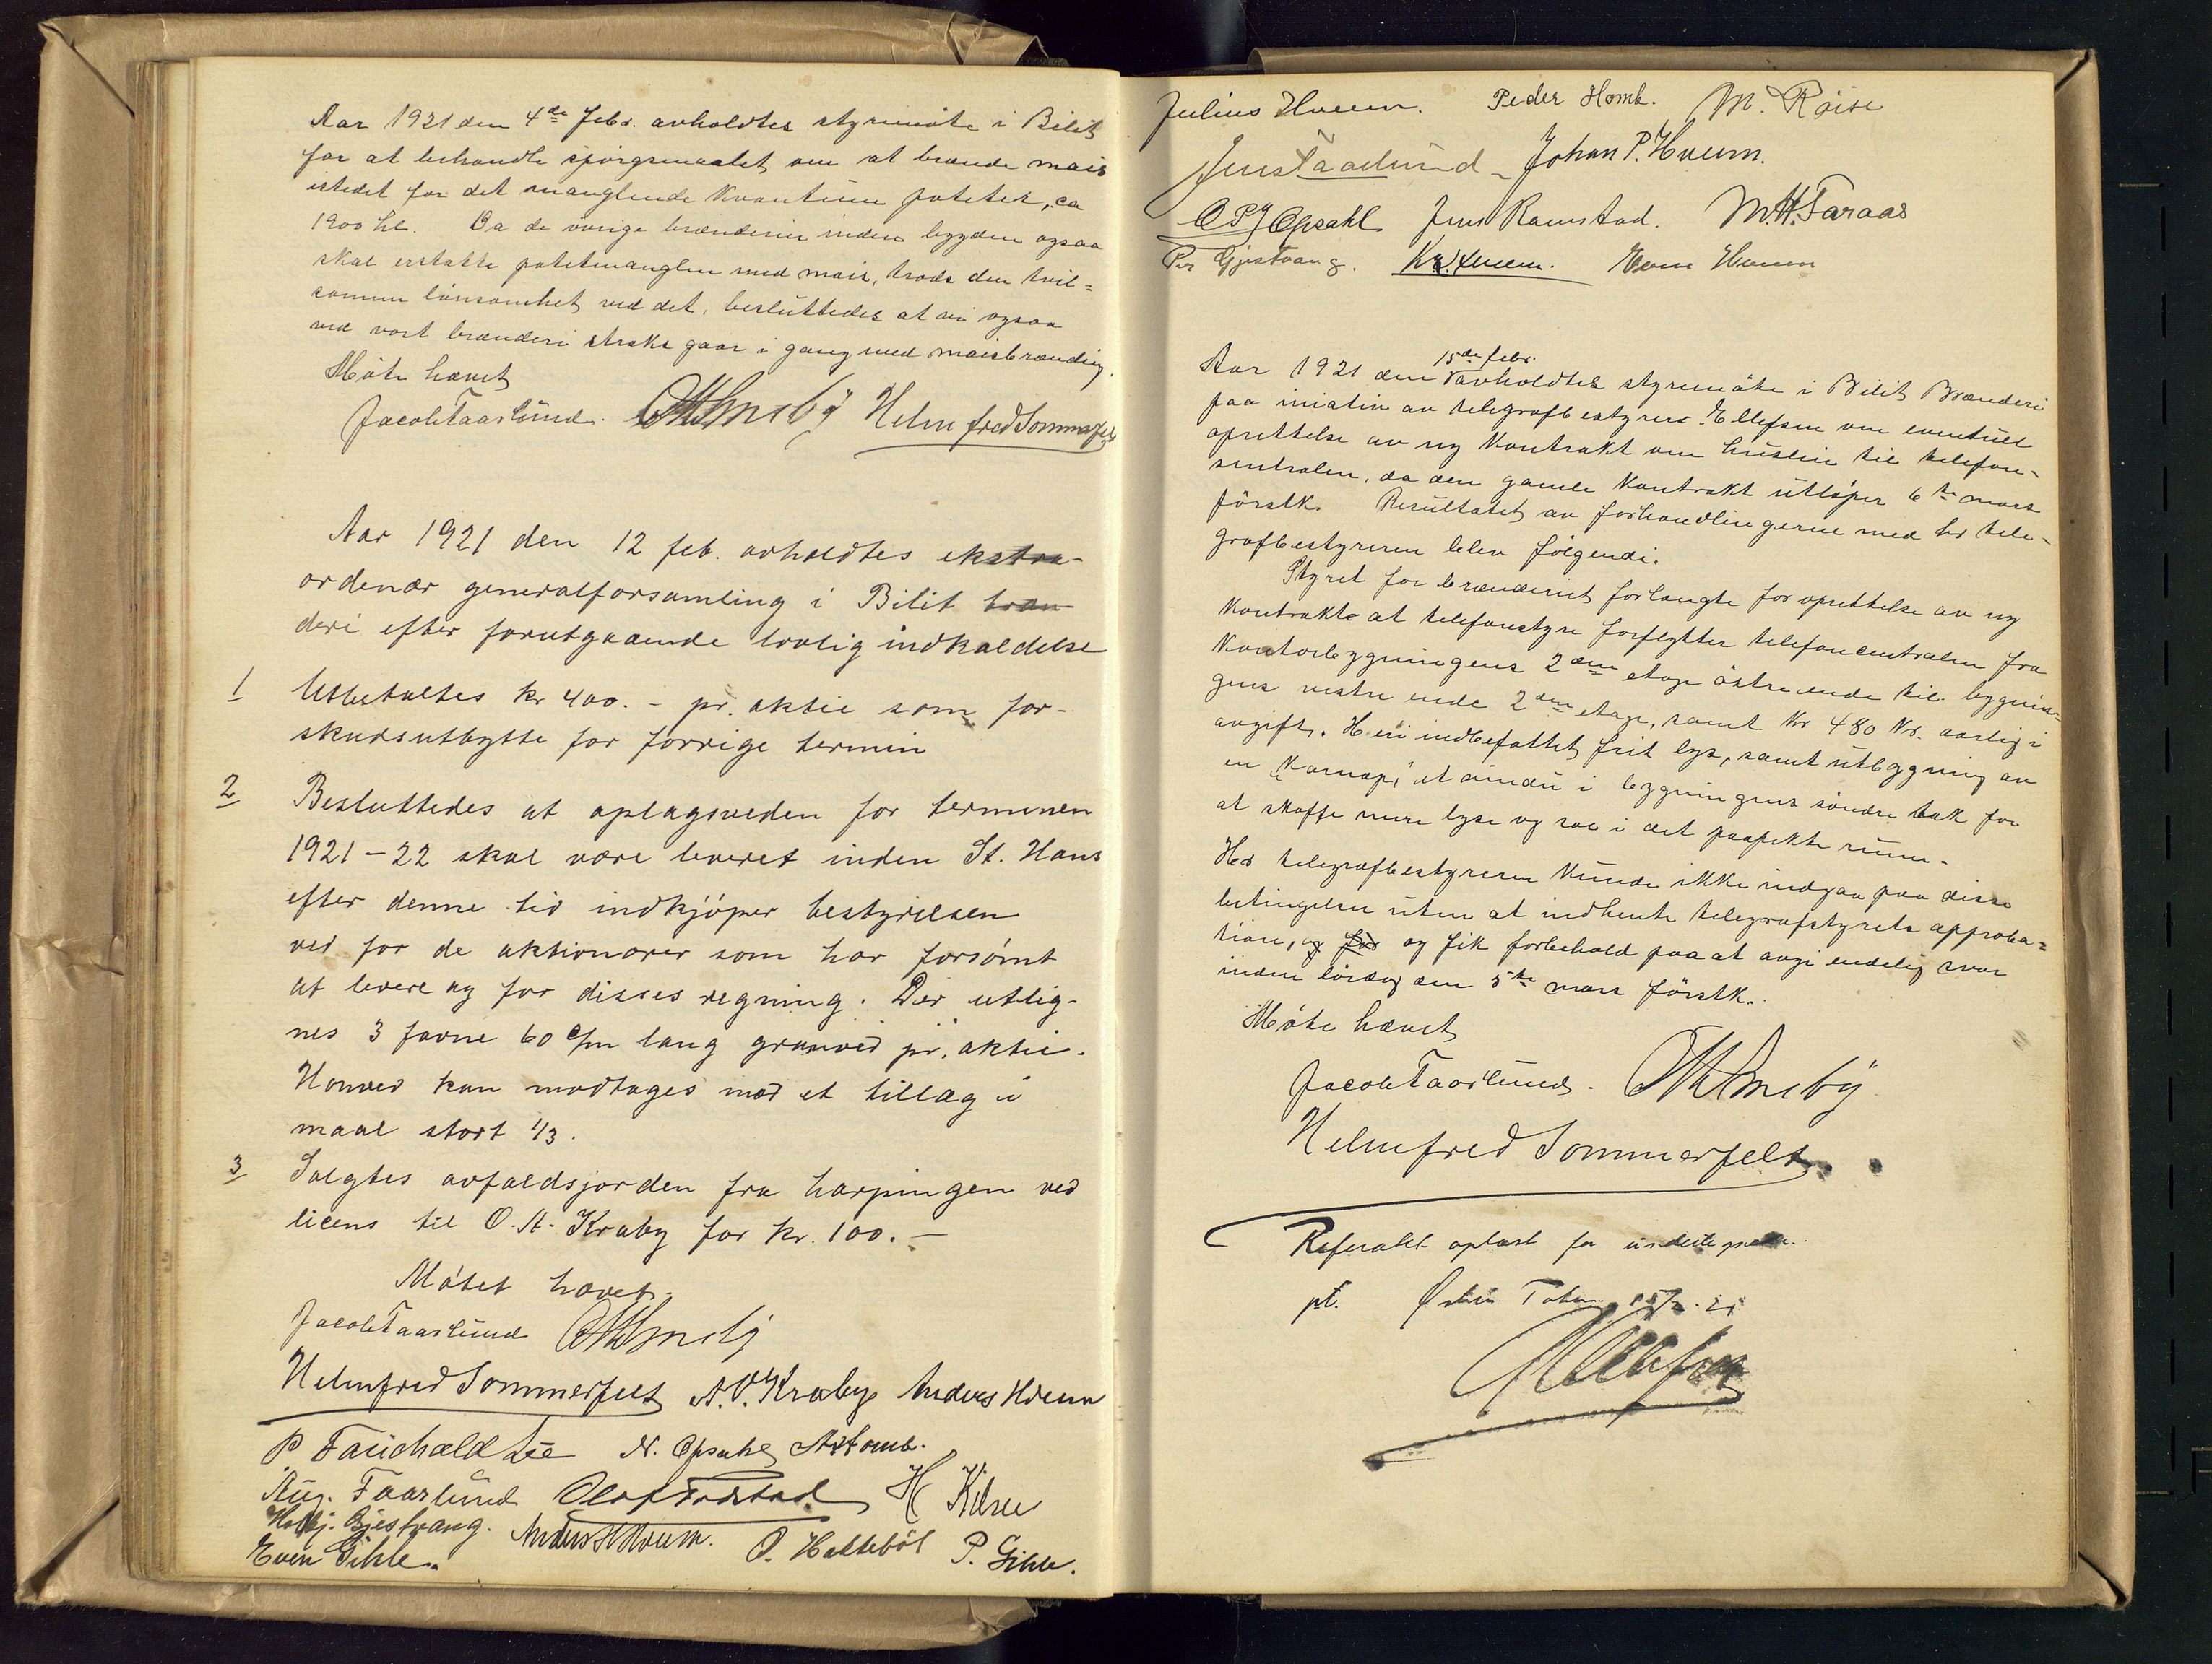 Aar 1921 den 4de febr. avholdtes styremöte i Bilit
for at behandle spörgsmaalet om at brænde mais
istedet for det manglende kvantum poteter, ca
1900 hl. Da de övrige brænderier inden bygden ogsaa
skal erstatte potetmanglen med mais, trods den tvil=
somme lönsomhet ved det, besluttedes at vi ogsaa
ved vort brænderi straks gaar i gang med maisbrænding.
Möte hævet
Jacob Faarlund. Helmfred Sommerfelt
Aar 1921 den 12 feb. avholdtes ekstra-
ordenær generalforsamling i Bilit bræn-
deri efter forutgaaende lovlig indkaldelse
1 Utbetaltes kr 400.- pr. aktie som for-
skudsutbytte for forrige termin
2 Besluttedes at oplagsveden for terminen
1921-22 skal være leveret inden St. Hans
efter denne tid indkjöper bestyrelsen
ved for de aktionærer som har forsömt
at levere og for disses regning. Der utlig-
nes 3 favne 60 c/m lang granved pr. aktie.
Honved kan modtages mod et tillæg i
maal stort 1/3.
3 Solgtes avfaldsjorden fra harpingen ved
licens til O. A. Kraby for kr. 100.-
Mötet hævet.
Jacob Faarlund
Helmfred Sommerfelt A. O. Kraby Anders Hveem
P Fauchald N. Opsahl A Homb.
Aug. Faarlund H Kilne
Gjestvang. Anders H Hveem. O. Hatteböl P. Gihle.
Even Gihle.
Julius Hveem. Peder Homb. M. Röise
Jens Faarlund - Johan P. Hveem.
O P Opsahl Jens Ramstad. M. H. Faraas
Per Gjestvang. Kr. Hveem. Hveem
15de febr.
Aar 1921 den avholdtes styremöte i Bilit Brænderi
paa iniativ av telegrafbestyrer Ellefsen om eventuel
oprettelse av ny kontrakt om husleie til telefon-
sentralen, da den gamle kontrakt utlöper 6te mars
förstk. Resultatet av forhandlingerne med hr tele-
grafbestyreren blev fölgende.
Styret for brænderiet forlangte for oprettelse av ny
kontrakt at telefonstyre forflytter telefoncentralen fra
Kontorbygningens 2den etage östre ende til bygnin-
gens vestre ende 2den etage, samt Kr 480 Kr. aarlig i
avgift. Heri indbefattet frit lys, samt utbygning av
en "Karnap," et vindu i bygningens söndre tak for
at skaffe mere lyse og rum i det paapekte rum.
Hr telegrafbestyreren kunde ikke indgaa paa disse
betingelser uten at indhente telegrafstyrets approba=
tion, og for og fik forbehold paa at avgi endelig svar
inden lördag den 5te mars förstk.
Möte hævet
Jacob Faarlund.
Helmfred Sommerfelt
Referatet oplæst for
pt. Östre Toten 15/2. 21